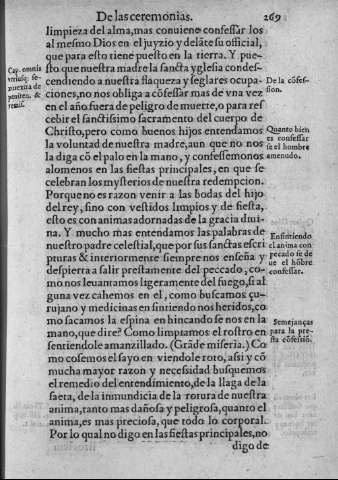 De las ceremonias. 269
limpieza del alma, mas conuiene confessar los
al mesmo Dios en el juyzio y deláte su official,
que para esto tiene puesto en la tierra. Y pue-
sto que nuestra madre la sancta yglesia condes-
cendiendo a nuestra flaqueza y seglares ocupa-
ciones, no nos obliga a cõfessar mas de vna vez
en el año fuera de peligro de muerte, o para res
cebir el sanctissimo sacramento del cuerpo de
Christo, pero como buenos hijos entendamos
la voluntad de nuestra madre, aun que no nos
la diga cõ el palo en la mano, y confessemonos
alomenos en las fiestas principales, en que se
celebran los mysterios de nuestra redempcion.
Porque no es razon venir a las bodas del hijo
del rey, sino con vestidos limpios y de fiesta,
esto es con animas adornadas de la gracia diui-
na. Y mucho mas entendamos las palabras de
nuestro padre celestial, que por sus sanctas escri
pturas & interiormente siempre nos enseña y
despierta a salir prestamente del peccado, co-
mo nos leuantamos ligeramente del fuego, si al
guna vez cahemos en el, como buscamos çu-
rujano y medicinas en sintiendo nos heridos, co
mo sacamos la espina en hincando se nos en la
mano, que dire? Como limpiamos el rostro en
sentiendole amanzillado. (Grãde miseria.) Co
mo cosemos el sayo en viendole roto, assi y cõ
mucha mayor razon y necessidad busquemos
el remedio del entendimiento, de la llaga de la
saeta, de la inmundicia de la rotura de nuestra
anima, tanto mas dañosa y peligrosa, quanto el
anima, es mas preciosa, que todo lo corporal.
Por lo qual no digo en las fiestas principales, no
digo de
Cap. omnis
vtriusq; se-
xus extra de
peniten. &
remis.
De la cõfes-
sion.
Quanto bien
es confessar
se el hombre
amenudo.
En sintiendo
el anima con
pecado se de
ue el hõbre
confessar.
Semejanças
para la pre-
sta cõfessiõ.